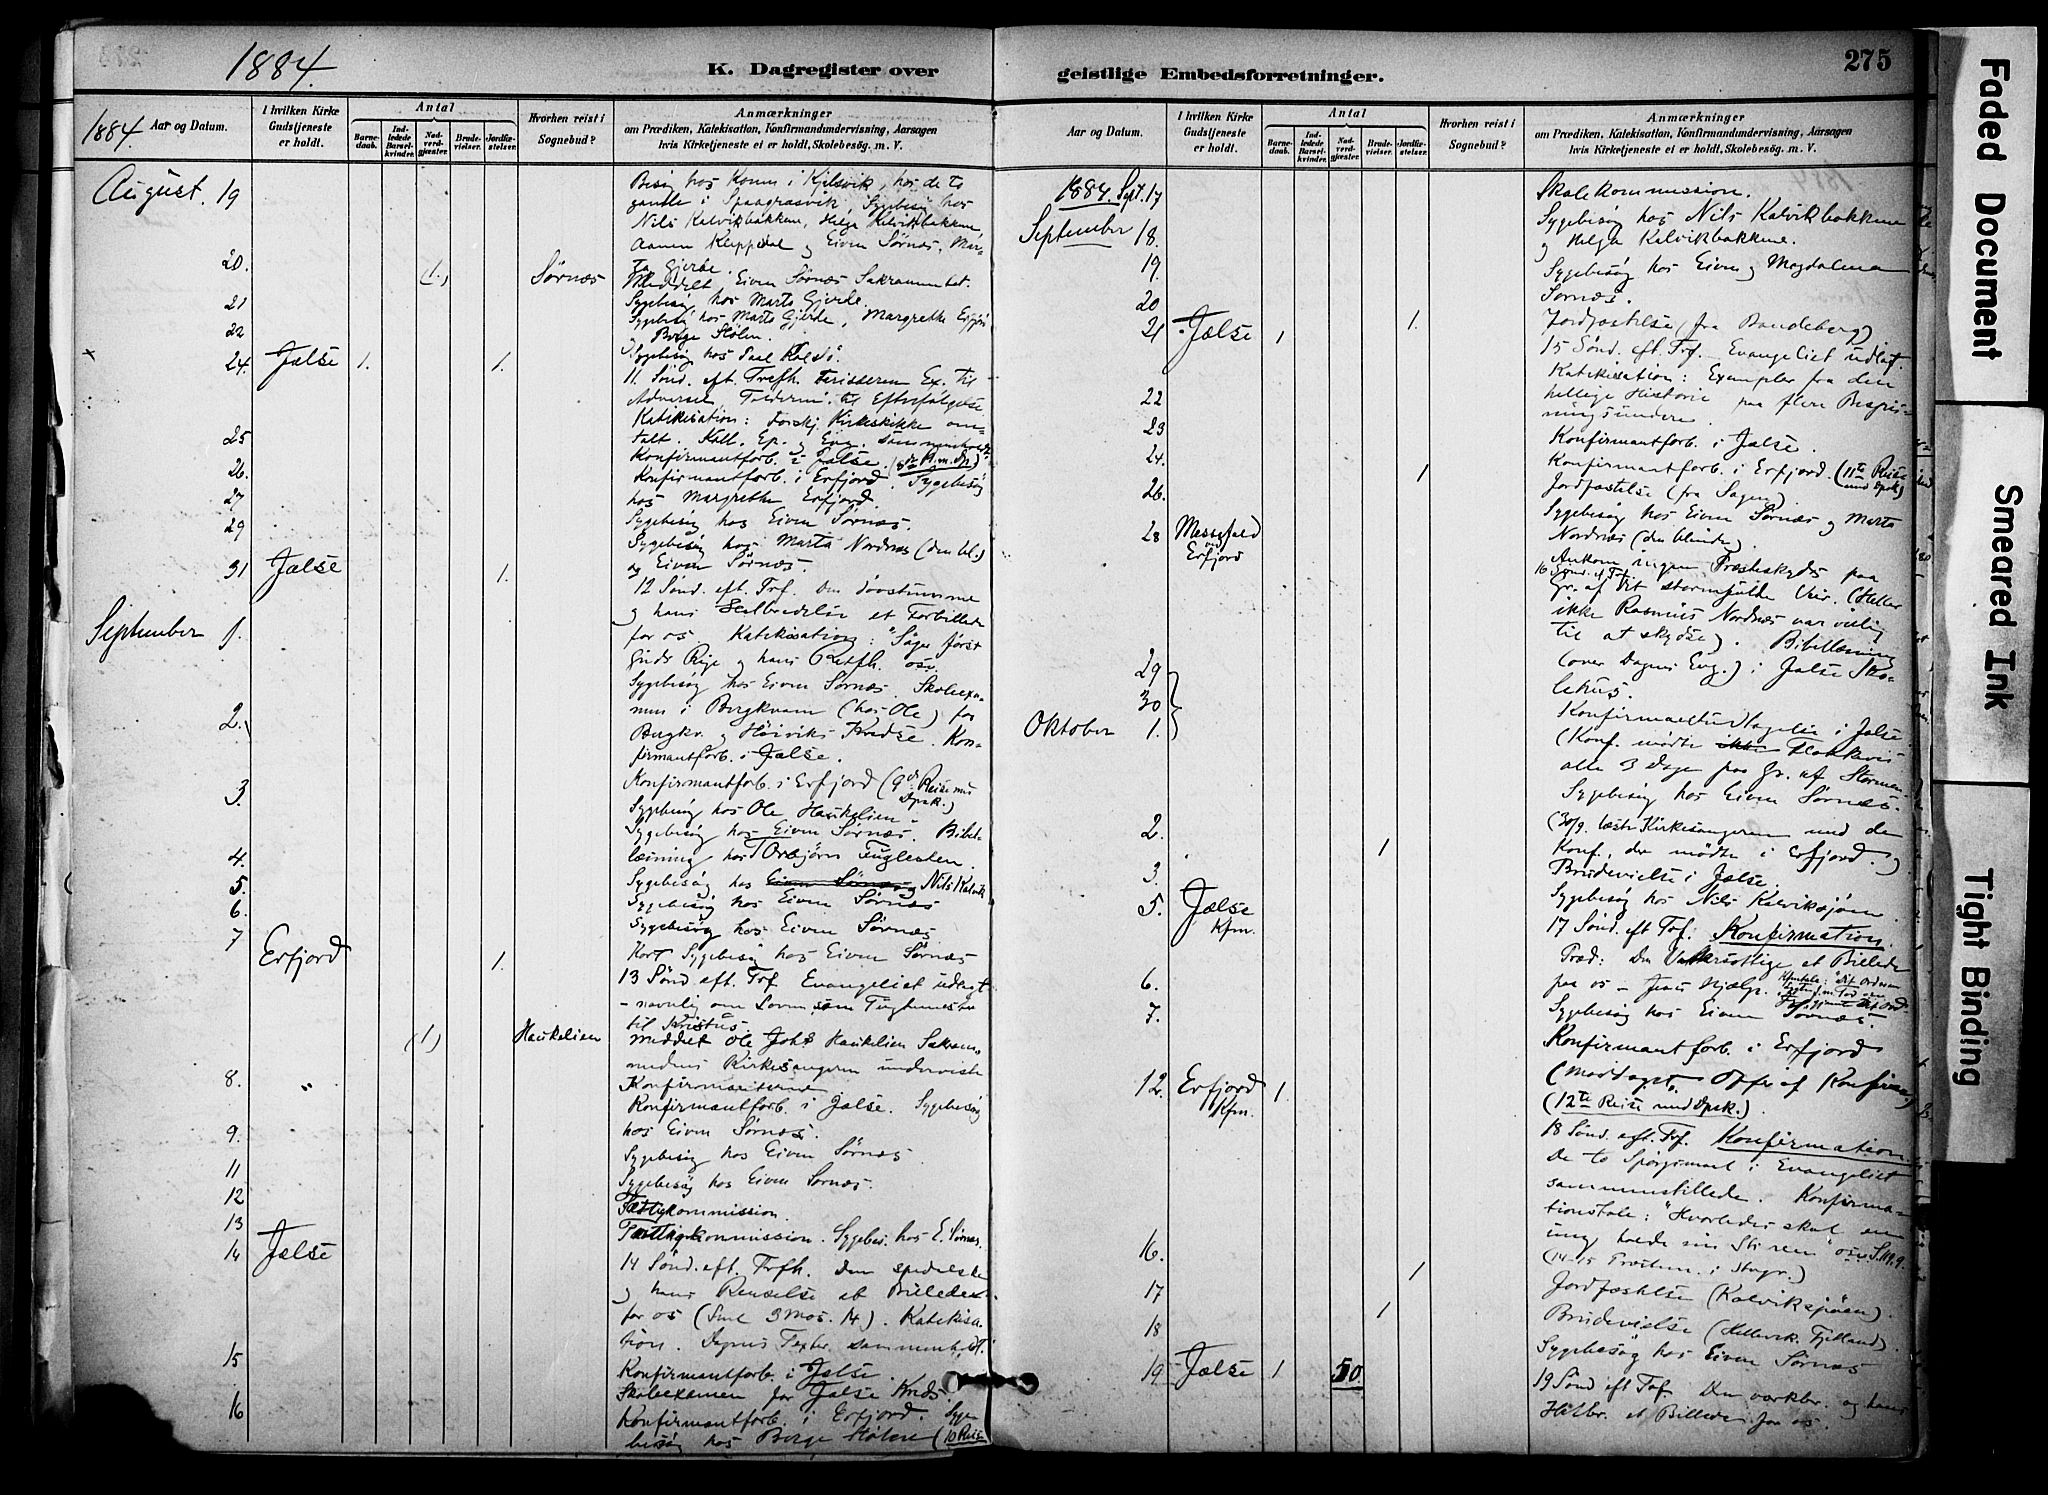 1884.
K. Dagregister over
1884. Aar og Datum.
I hvilken Kirke Gudstjeneste er holdt.
Antal
Barnedaab.
Indledede Barselkvinder.
Nadverdgjæster.
Brudevielser.
Jordfæstelser.
Hvorhen reist i Sognebud?
Anmærkninger
om Prædiken, Katekisation, Konfirmandundervisning, Aarsagen
hvis Kirketjeneste ei er holdt, Skolebesøg. m. V.
August. 19
Besøg hos Konen i Kjølsvik, hos de to
gamle i Spaagrasvik, Sygebesøg hos
Nils Kalvikbakken, Helge Kalvikbakken,
og Eiven Sørnæs, Mar-
ta Gjerde.
20. (1.) Sørnæs
Meddelt Eiven Sørnæs Sakramentet.
21
Sygebesøg hos Marta Gjerde.
22
Sygebesøg hos Marta Gjerde, Margrethe Erfjord
og Børge Stølen.
Sygebesøg hos Paul
24. Jælse 1. 1.
11. Sønd. eft. Trefh. Farisæeren Ex. til
Advarsel, Tolderen til Efterfølgelse.
Katekisation: Forskj. Kirkeskikke om-
talt. Koll. Ep. og Evg. sammenholdt.
25
Konfirmantforb. i Jælse.
26.
Konfirmantforb. i Erfjord. Sygebesøg
hos Margrethe Erfjord.
27
Sygebesøg hos Eiven Sørnæs.
29
Sygebesøg hos Marta Nordnæs (den bl.)
og Eiven Sørnæs.
31 Jælse 1.
12 Sønd. eft. Trf. Den døvstumme
og hans Helbredelse et Forbillede
for os. Katekisation: "Søger først
Guds Rige og hans Retfh. osv.
September 1.
Sygebesøg hos Eiven Sørnæs. Skoleexa-
men i Bergkvam (hos Ole) for
Bergkv. og Høiviks Kredse. Kon-
firmantforb. i Jælse.
2.
Konfirmantforb. i Erfjord (9de Reise med Dpsk.)
3.
Sygebesøg hos Ole Haukelien.
Sygebesøg hos Eiven Sørnæs. Bibel-
læsning hos Torbjørn Fuglesten.
4.
Sygebesøg hos Eiven Sørnæs Nils Kalvik
5.
Sygebesøg hos Eiven Sørnæs
6.
Sygebesøg hos Eiven Sørnæs
7 Erfjord 1.
Kort Sygebesøg hos Eiven Sørnæs
13 Sønd. eft. Trf Evangeliet udlagt
- navnlig om Loven som Tugtemester
til Kristus.
(1) Haukelien
Meddelt Ole Johs Haukelien Sakram.
medens Kirkesangeren underviste
Konfirmanterne
8. "
Konfirmantforb. i Jælse. Sygebesøg
hos Eiven Sørnæs.
9.
Sygebesøg hos Eiven Sørnæs
11
Sygebesøg hos Eiven Sørnæs.
12
Fattigkommission.
13
Fattigkommission. Sygebes. hos E. Sørnæs.
14 Jælse
14 Sønd. eft. Trfh. Den spedalske
og hans Renselse et Billede
for os (Sml 3 Mos. 14). Katekisa-
tion. Dagens Texter sammenholdt.
15
Konfirmantforb. i Jælse.
Skoleexamen for Jælse Kreds.
16
Konfirmantforb. i Erfjord. Syge-
besøg hos Børge Stølen (10 Reise
geistlige Embedsforretninger.
275
Aar og Datum.
I hvilken Kirke Gudstjeneste er holdt.
Antal
Barnedaab.
Indledede Barselkvinder.
Nadverdgjæster.
Brudevielser.
Jordfæstelser.
Hvorhen reist i Sognebud?
Anmærkninger
om Prædiken, Katekisation, Konfirmandundervisning, Aarsagen
hvis Kirketjeneste ei er holdt, Skolebesøg. m. V.
1884. Sept. 17
Skolekommission.
September 18.
Sygebesøg hos Nils Kalvikbakkene
og Helga Kalvikbakkene.
19.
Sygebesøg hos Eiven og Magdalena
Sørnæs.
20 1.
Jordfæstelse (fra Bandeberg)
21 Jælse 1
15 Sønd. eft. Trf. Evangeliet udlagt.
Katekisation: Exempler fra den
hellige Historie paa flere Bespis-
ningsundere.
22
Konfirmantforb. i Jælse.
23
Konfirmantforb. i Erfjord. (11te Reise med Dpsk)
24. 1
Jordfæstelse (fra Sagen).
26.
Sygebesøg hos Eiven Sørnæs og Marta
Nordnæs (den blinde).
28 Messefald ved Erfjord
16 Sønd. e. Trf.
Ankom ingen Præsteskyds paa
Gr. af det stormfulde Veir. (Heller
ikke Rasmus Nordnæs var villig
til at skydse). Bibellæsning
(over Dagens Evg.) i Jælse Sko-
lehus.
29
30
Oktober 1.
Konfirmantundtagelse i Jælse
(Konf. mødte ikke Flokkevis
alle 3 Dage paa Gr. af Stormen.
Sygebesøg hos Eiven Sørnæs.
(30/9. læste Kirkesangeren med de
Konf., der mødte i Erfjord.)
2. 1
Brudevielse i Jælse.
3.
Sygebesøg hos Nils Kalviksjøen.
5. Jælse Kfm.
17 Sønd. eft Trf: Konfirmation.
Præd: Den Vattersottige et Billede
paa os - Jesus Hjælp.
6.
Sygebesøg hos Eiven Sørnæs.
7.
Konfirmantforb. i Erfjord
(Modtaget Offer af Konfirm.)
(12te Reise med Dpsk.).
12. Erfjord Kfm. 1.
18 Sønd. eft. Trf. Konfirmation.
De to Spørgsmaal i Evangeliet
sammenstillede. Konfirma-
tionstale: "Hvorledes skal en
ung holde sin Sti ren" osv S. 119,9.
(14-15 Provsten i Stvgr.)
16. 1
Jordfæstelse (Kalviksjøen).
17 1
Brudevielse (Hellevik. Fjelland).
18
Sygebesøg hos Eiven Sørnæs
19 Jælse 1 50.
19 Sønd eft Trf. Den værkbr. og hans
Helbr. et Billede for os.
Faded Document
Smeared Ink
Tight Binding